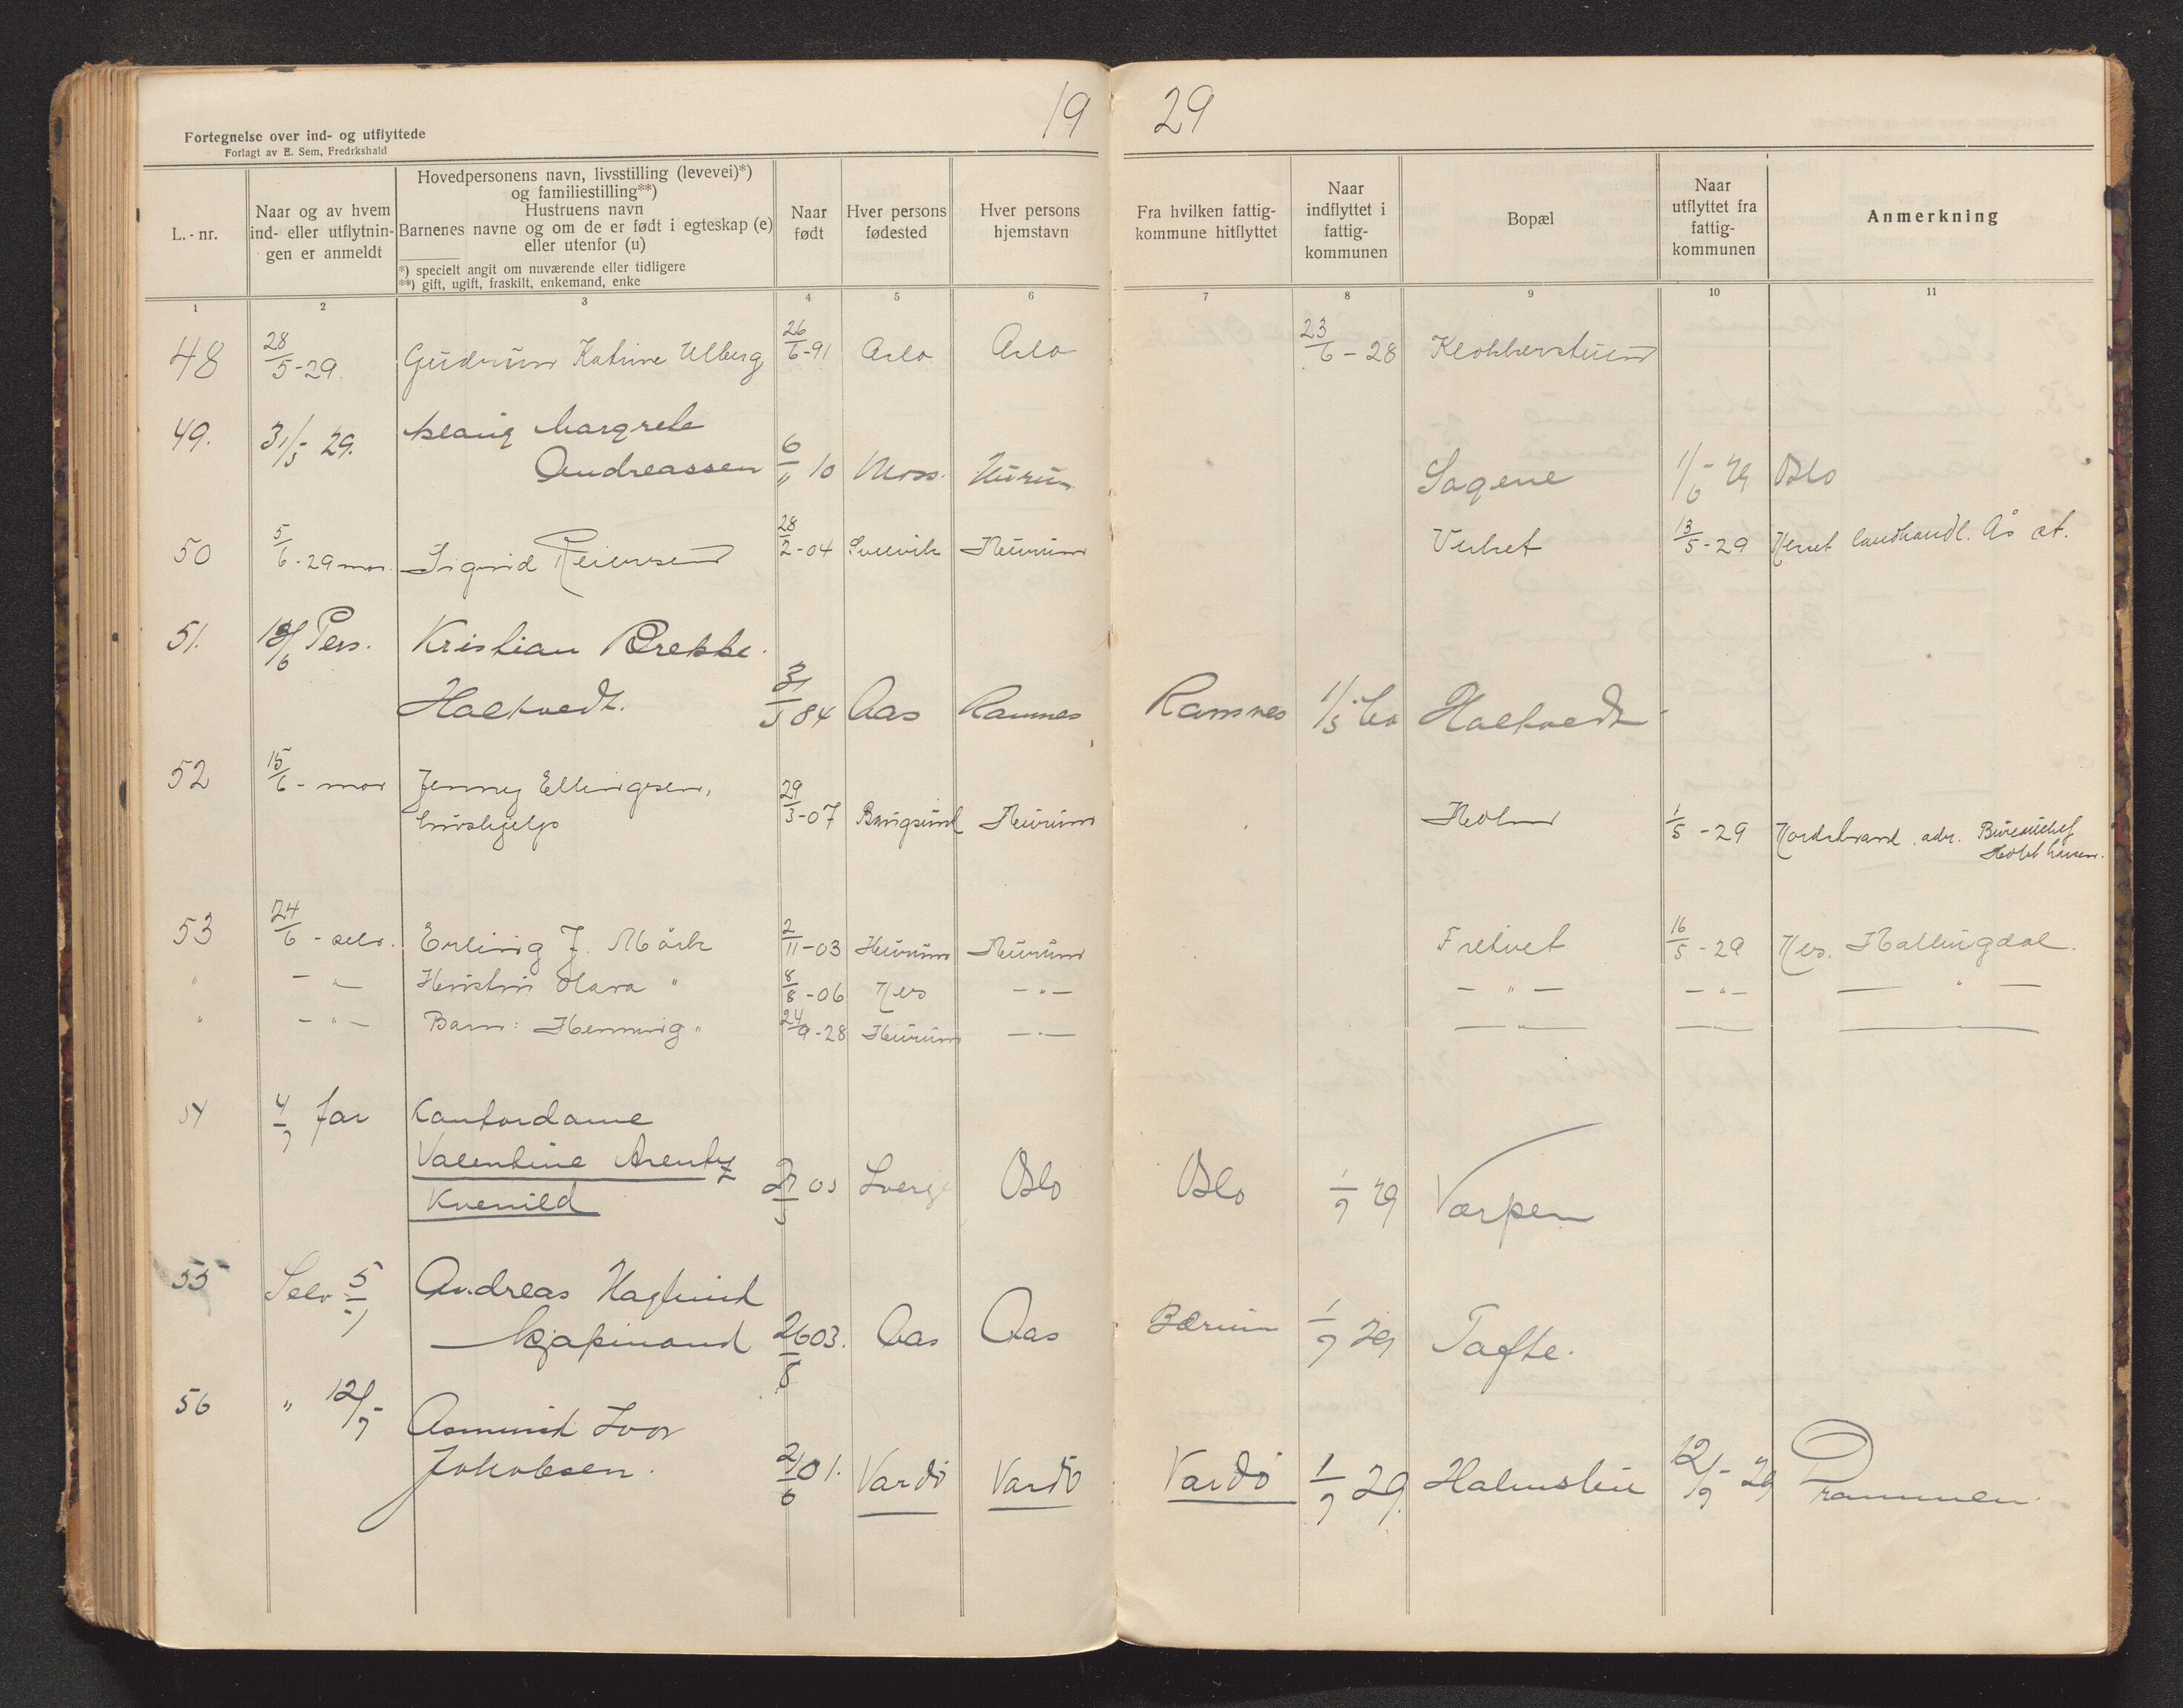 19 29
Fortegnelse over ind- og utflyttede
Forlagt av E. Sem, Fredrkshald
L.-nr.
Naar og av hvem
ind- eller utflytnin-
gen er anmeldt
Hovedpersonens navn, livsstilling (levevei)*)
og familiestilling**)
Hustruens navn
Barnenes navne og om de er født i egteskap (e)
eller utenfor (u)
*) specielt angit om nuværende eller tidligere
**) gift, ugift, fraskilt, enkemand, enke
Naar
født
Hver persons
fødested
Hver persons
hjemstavn
Fra hvilken fattig-
kommune hitflyttet
Naar
indflyttet i
fattig-
kommunen
Bopæl
Naar
utflyttet fra
fattig-
kommunen
Anmerkning
1 2 3 4 5 6 7 8 9 10 11
48 28/5-29. Gudrun Katrine Ulberg 26/6-91 Oslo Oslo 23/6-28 Klokkerstuen
49. 31/5-29. Margrete
Andreassen 6/11 10 Moss. Hurum Sagene 1/6-29 Oslo
50 5/6-29 mor. Sigrid Reiersen 28/2-04 Hurum Verket 13/5-29 landhandl. Ås st.
51. /6 Pers. Kristian Brekke.
Halkvedt. 84 Aas Ramnes Ramnes 1/5 Halkvedt
52 15/6-mor Jenny Ellingsen,
hushjelp 29/3-07 Hurum Holm 1/5-29 Nordstrand. adr. Bureauchef
53 24/6-selv. Erling J. Mörk 2/11-03 Hurum Hurum Fretvet 16/5-29 Nes. Hallingdal.
" - " - Kristin Mara " 8/8-06 Nes - " - - " - - " - - " -
" - " - Barn: Henning " 24/9-28 Hurum - " - - " - - -
54 4/7 far Kontordame
Valentine Arentz
Kvenild 03 Sverge Oslo Oslo 1/7 29 Varpen
55 Selv 5/7 Andreas Haglund
26/8 03. Aas Aas Bærum 1/7 29 Tofte.
56 " 12/7- Asmund Ivar
Jakobsen. 01. Vardö Vardö Vardö 1/7 29. Holmslien 12/7-29 Drammen.